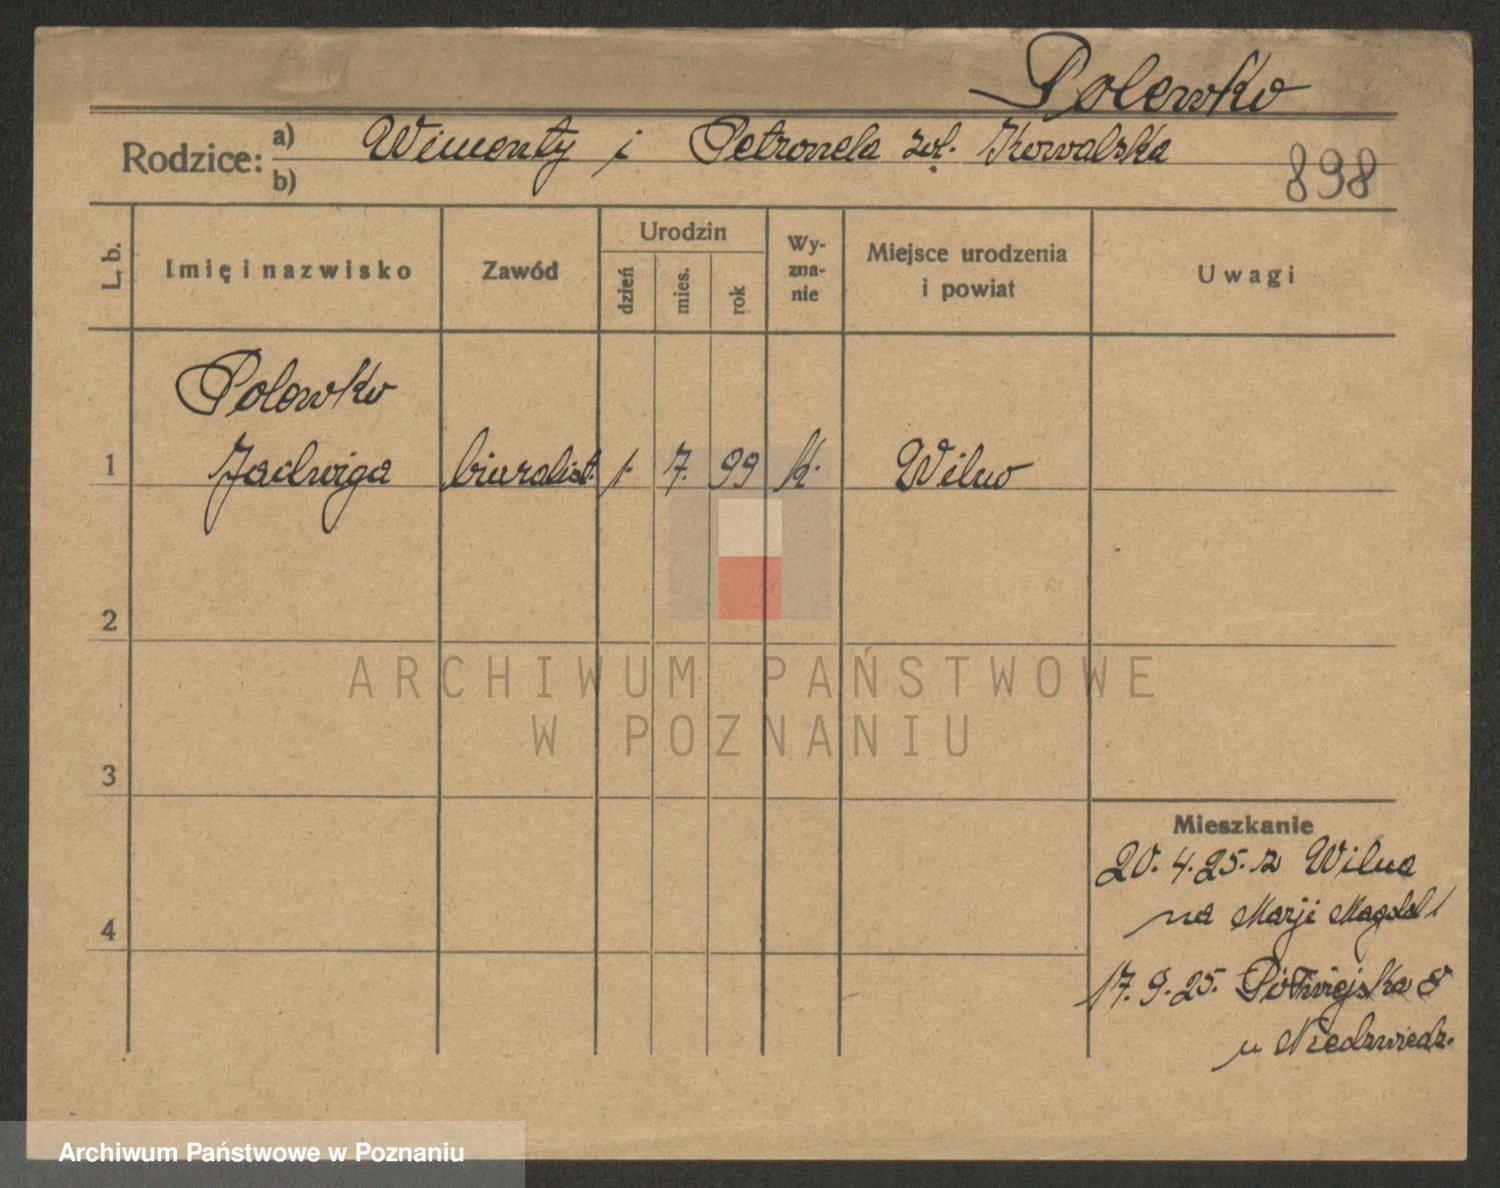 Polewko
Rodzice: a) Wincenty i Petronela zd. Kowalska
b)
898
L. b.
Imię i nazwisko
Zawód
Urodzin
dzień
mies.
rok
Wy-
zna-
nie
Miejsce urodzenia
i powiat
Uwagi
Polewko
1 Jadwiga biuralist. 1. 7. 99 k. Wilno
2
3
4
Mieszkanie
20. 4. 25. z Wilna
na Marji Magdal 1
17. 9. 25. Półwiejska 8
u Niedzwiedz.
ARCHIWUM PAŃSTWOWE
W POZNANIU
Archiwum Państwowe w Poznaniu